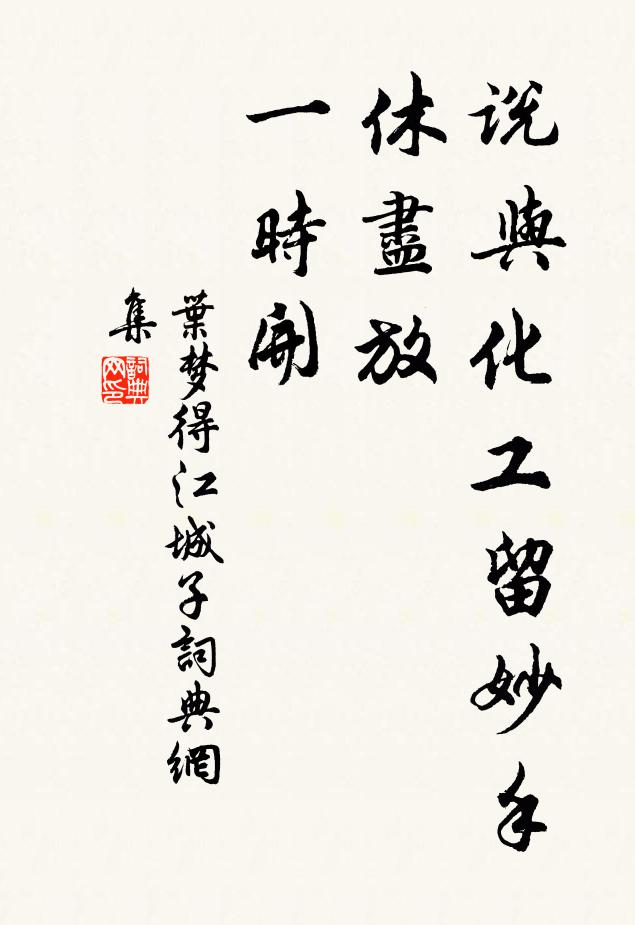 説與化工留妙手
休盡放
一時開
葉梦得江城子詞典網
集
詞典
网印